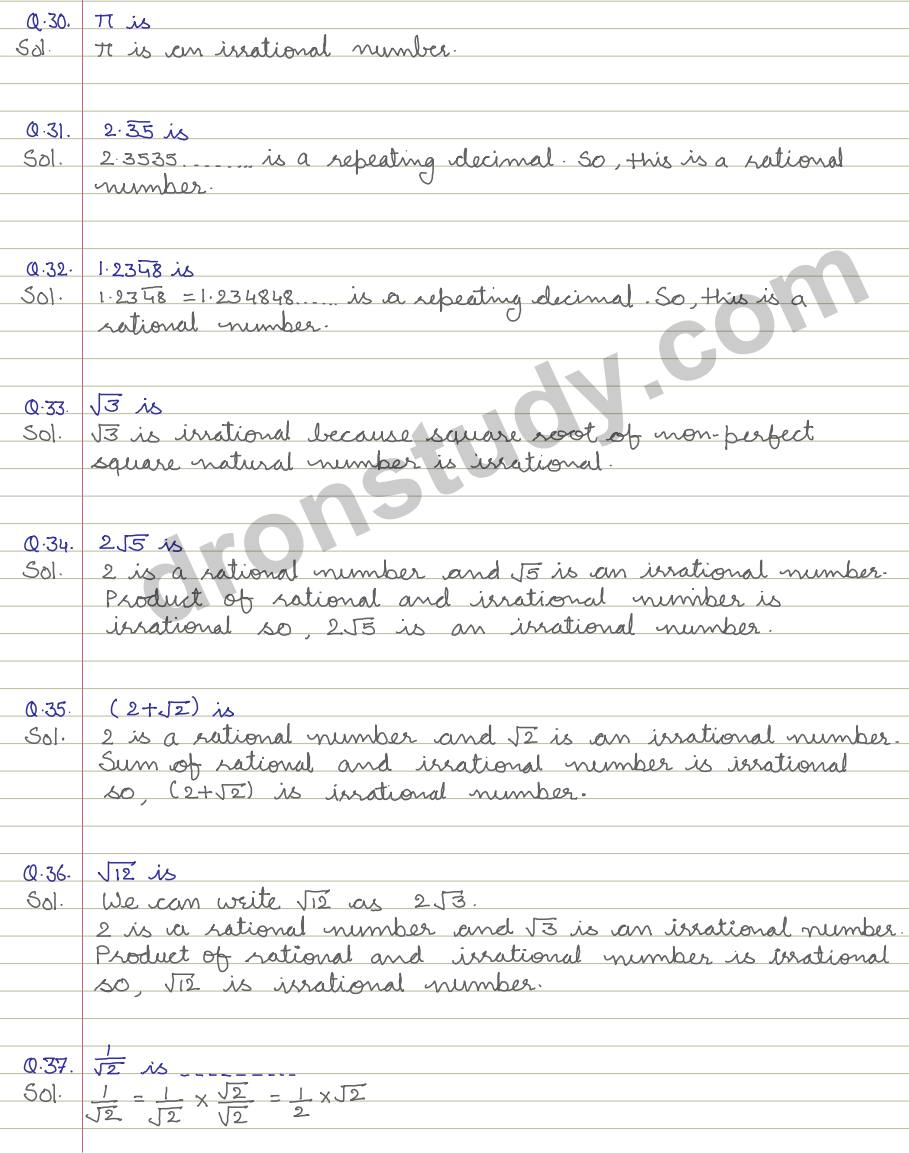 Q.30. π is
Sol. π is an irrational number.
Q.31. 2.3̅5̅ is
Sol. 2.3535........... is a repeating decimal. So, this is a rational
number.
Q.32. 1.234̅8̅ is
Sol. 1.234̅8̅ = 1.234848...... is a repeating decimal. So, this is a
rational number.
Q.33. √3 is
Sol. √3 is irrational because square root of non-perfect
square natural number is irrational.
Q.34. 2√5 is
Sol. 2 is a rational number and √5 is an irrational number.
Product of rational and irrational number is
irrational so, 2√5 is an irrational number.
Q.35. (2+√2) is
Sol. 2 is a rational number and √2 is an irrational number.
Sum of rational and irrational number is irrational
so, (2+√2) is irrational number.
Q.36. √12 is
Sol. We can write √12 as 2√3.
2 is a rational number and √3 is an irrational number.
Product of rational and irrational number is irrational
so, √12 is irrational number.
Q.37. 1/√2 is ----------
Sol. 1/√2 = 1/√2 × √2/√2 = 1/2 × √2
dronstudy.com